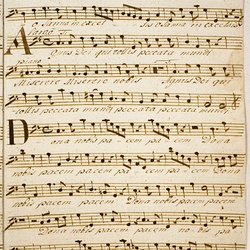 Osanna in excel sis osanna in excelsis
Largo
Agnus Dei qui tollis peccata mundi
piano
Miserere Miserere nobis Agnus Dei qui
tollis peccata mundi peccata peccata mundi
Dona nobis pa- cem pa- cem Dona
nobis pacem pacem pacem pacem Dona
nobis pacem pacem Dona nobis pacem
nobis pacem pacem no- bis pa